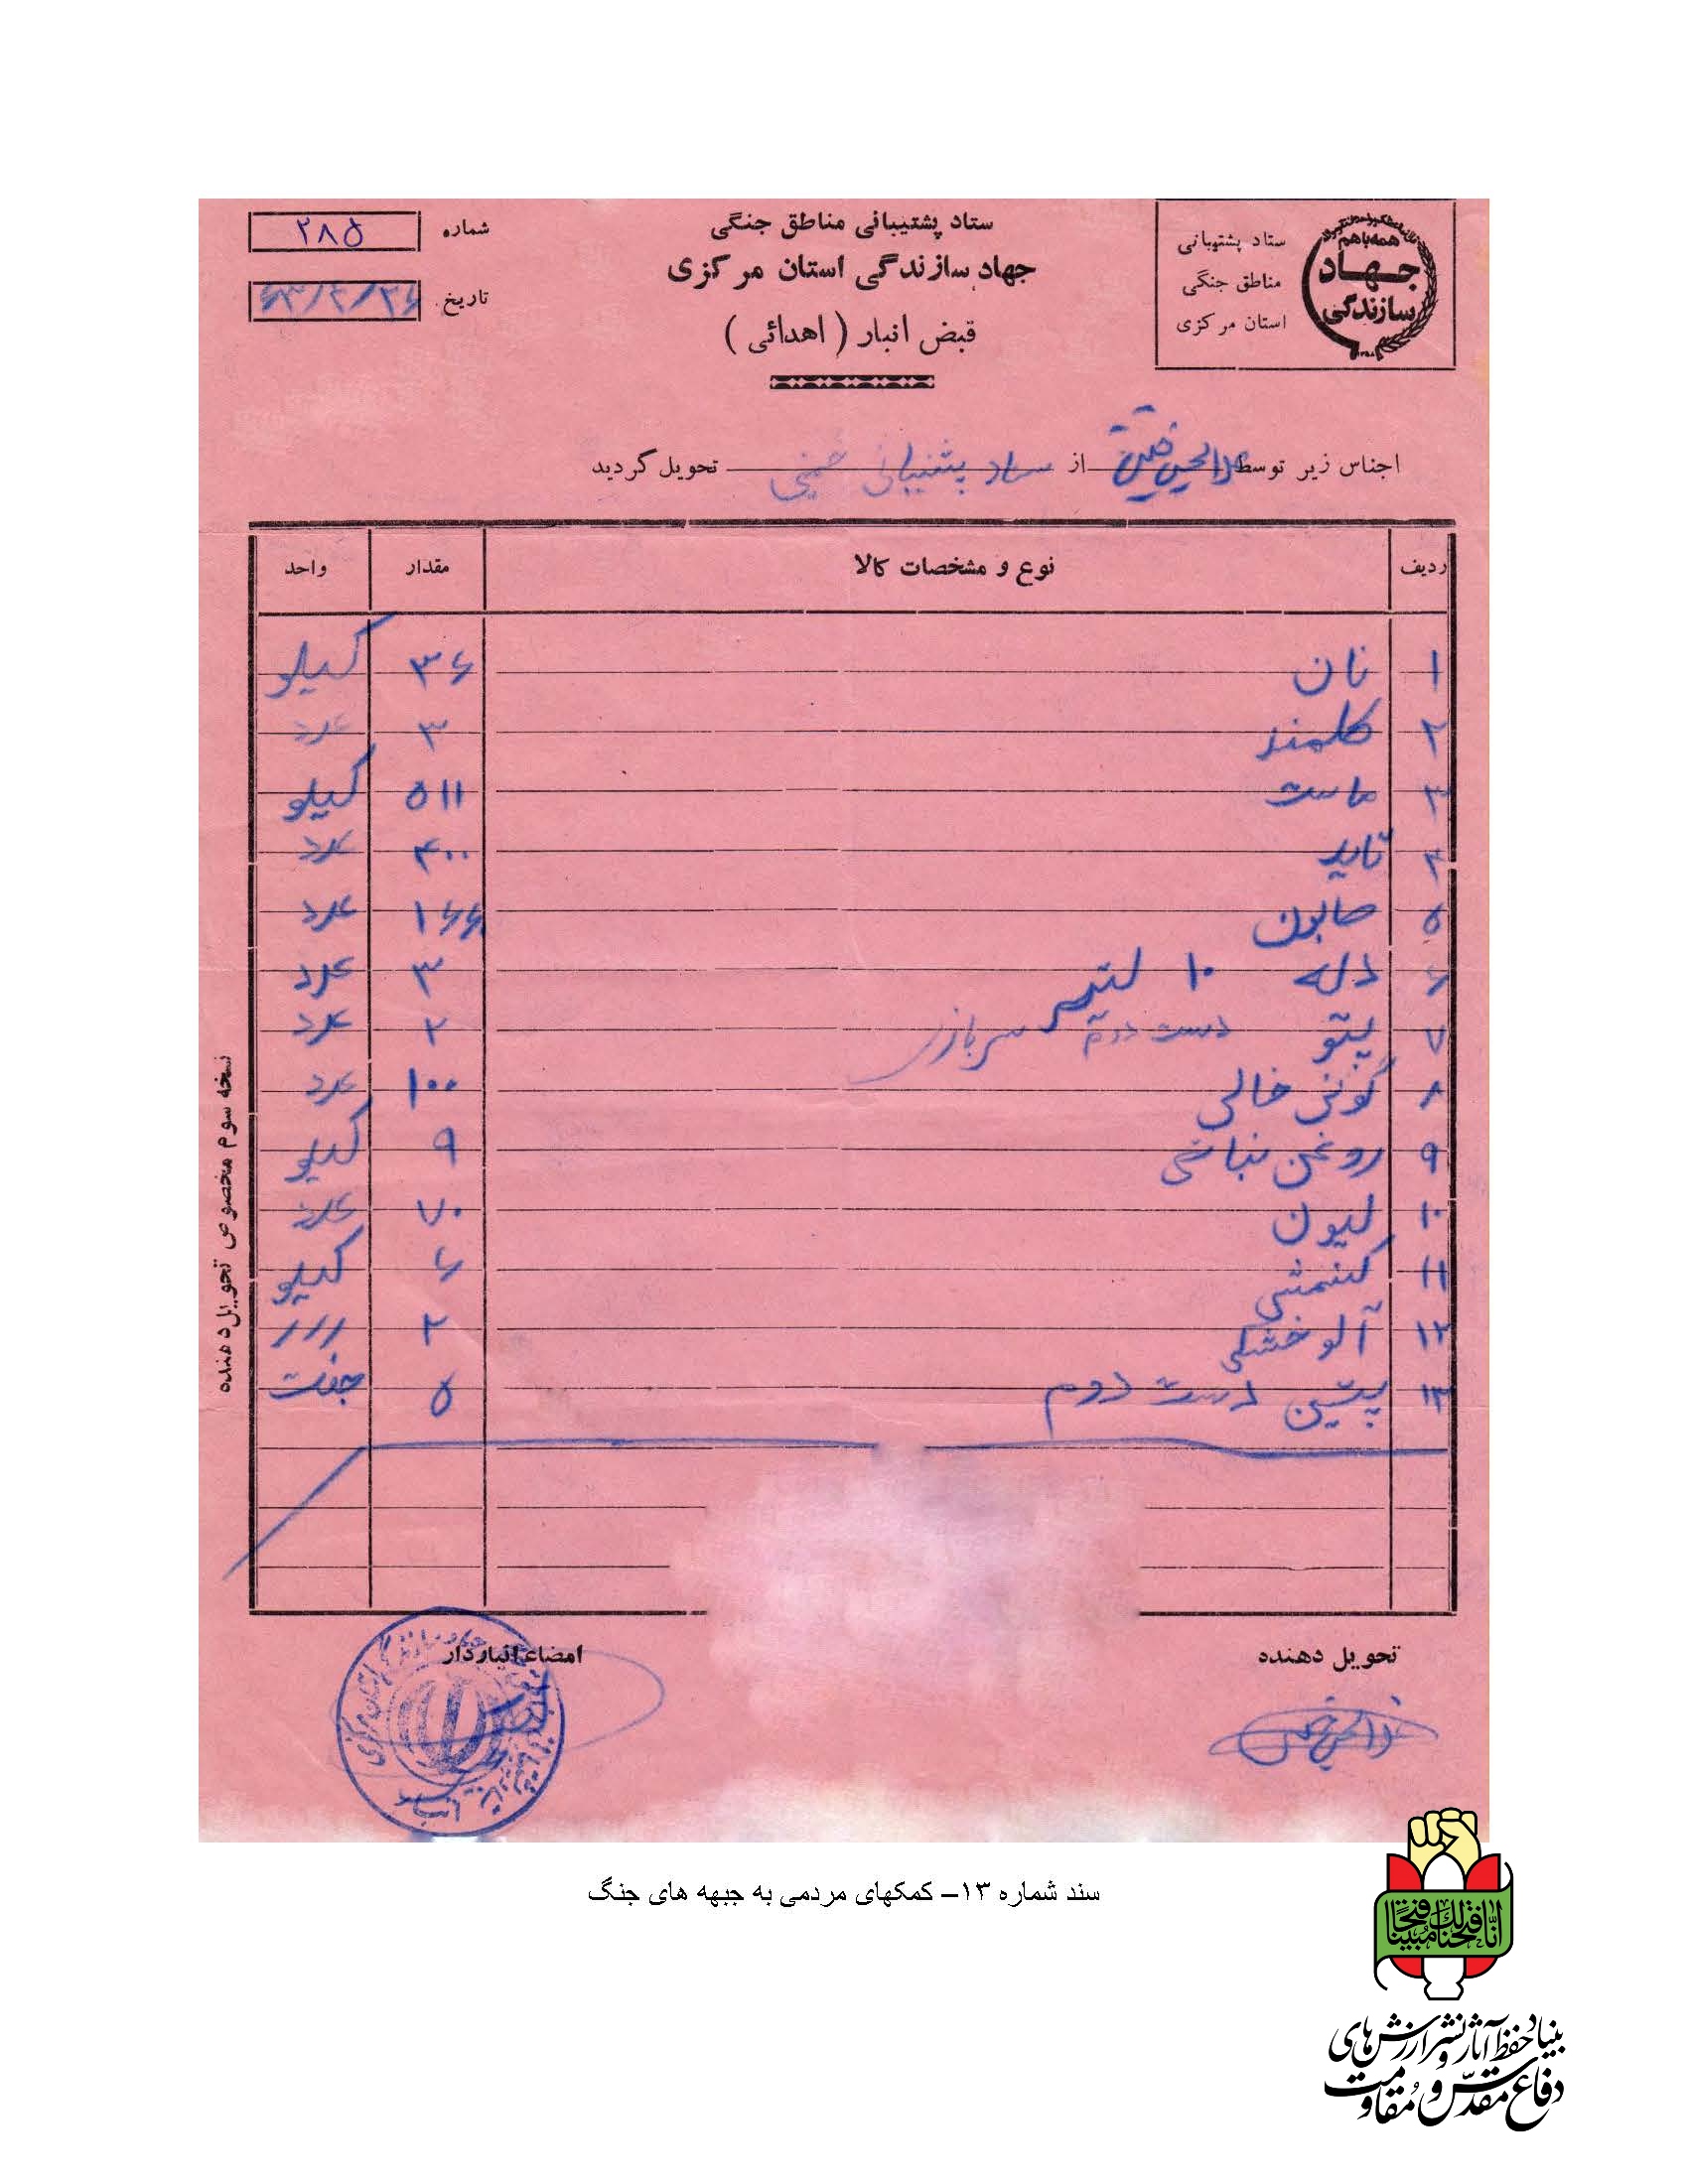 همه با هم
جهاد
سازندگی
ستاد پشتیبانی
مناطق جنگی
استان مرکزی
ستاد پشتیبانی مناطق جنگی
جهاد سازندگی استان مرکزی
قبض انبار ( اهدائی )
شماره ۲۸۵
تاریخ ۶۳/۲/۲۶
اجناس زیر توسط از ستاد پشتیبانی خمینی تحویل گردید
ردیف نوع و مشخصات کالا مقدار واحد
۱ نان ۳۶ کیلو
۲ کلمند ۳ عدد
۳ ماست ۵۱۱ کیلو
۴ تاید ۴۰۰ عدد
۵ صابون ۱۶۶ عدد
۶ دله ۱۰ لتیر ۳ عدد
۷ پتو دست دوم سربازی ۲ عدد
۸ گونی خالی ۱۰۰ عدد
۹ روغن نباتی ۹ کیلو
۱۰ لیون ۷۰ عدد
۱۱ کشمشی ۶ کیلو
۱۲ آلو خشکی ۲ ///
۱۳ پتین دست دوم ۵ جفت
نسخه سوم مخصوص تحویل دهنده
تحویل دهنده
امضاء انباردار
سند شماره ۱۳– کمکهای مردمی به جبهه های جنگ
انّا فتحنا لک فتحًا مُبینا
بنیاد حفظ آثار و نشر ارزش‌های
دفاع مقدّس و مُقاومت